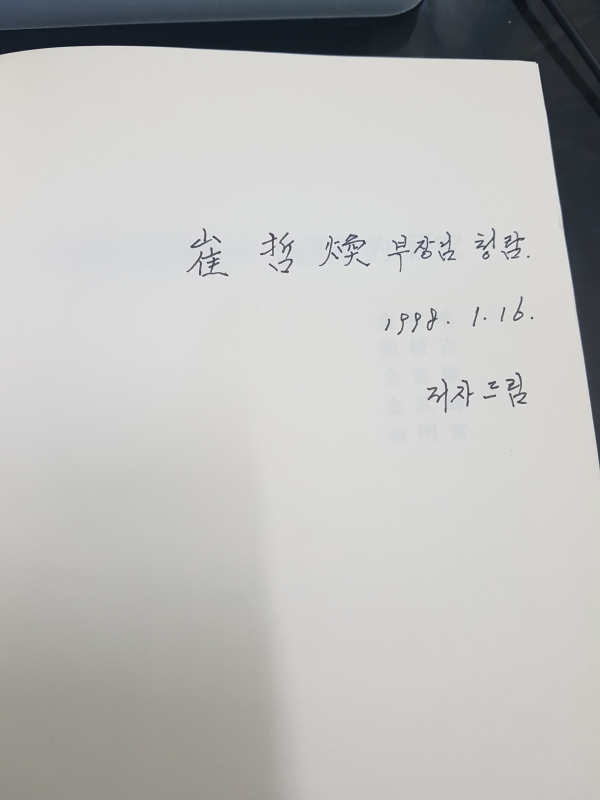 崔 哲 煥 부장님 청람.
1998. 1. 16.
저자드림